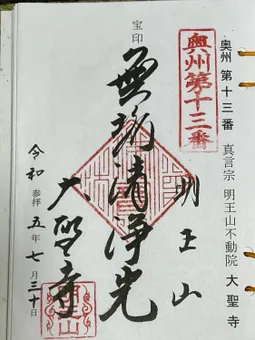 奥州 第十三番 真言宗 明王山不動院 大聖寺
奥州第十三番
明王山
宝印
無垢清浄光
大聖寺
令和 参拝 五年 七月 三十日